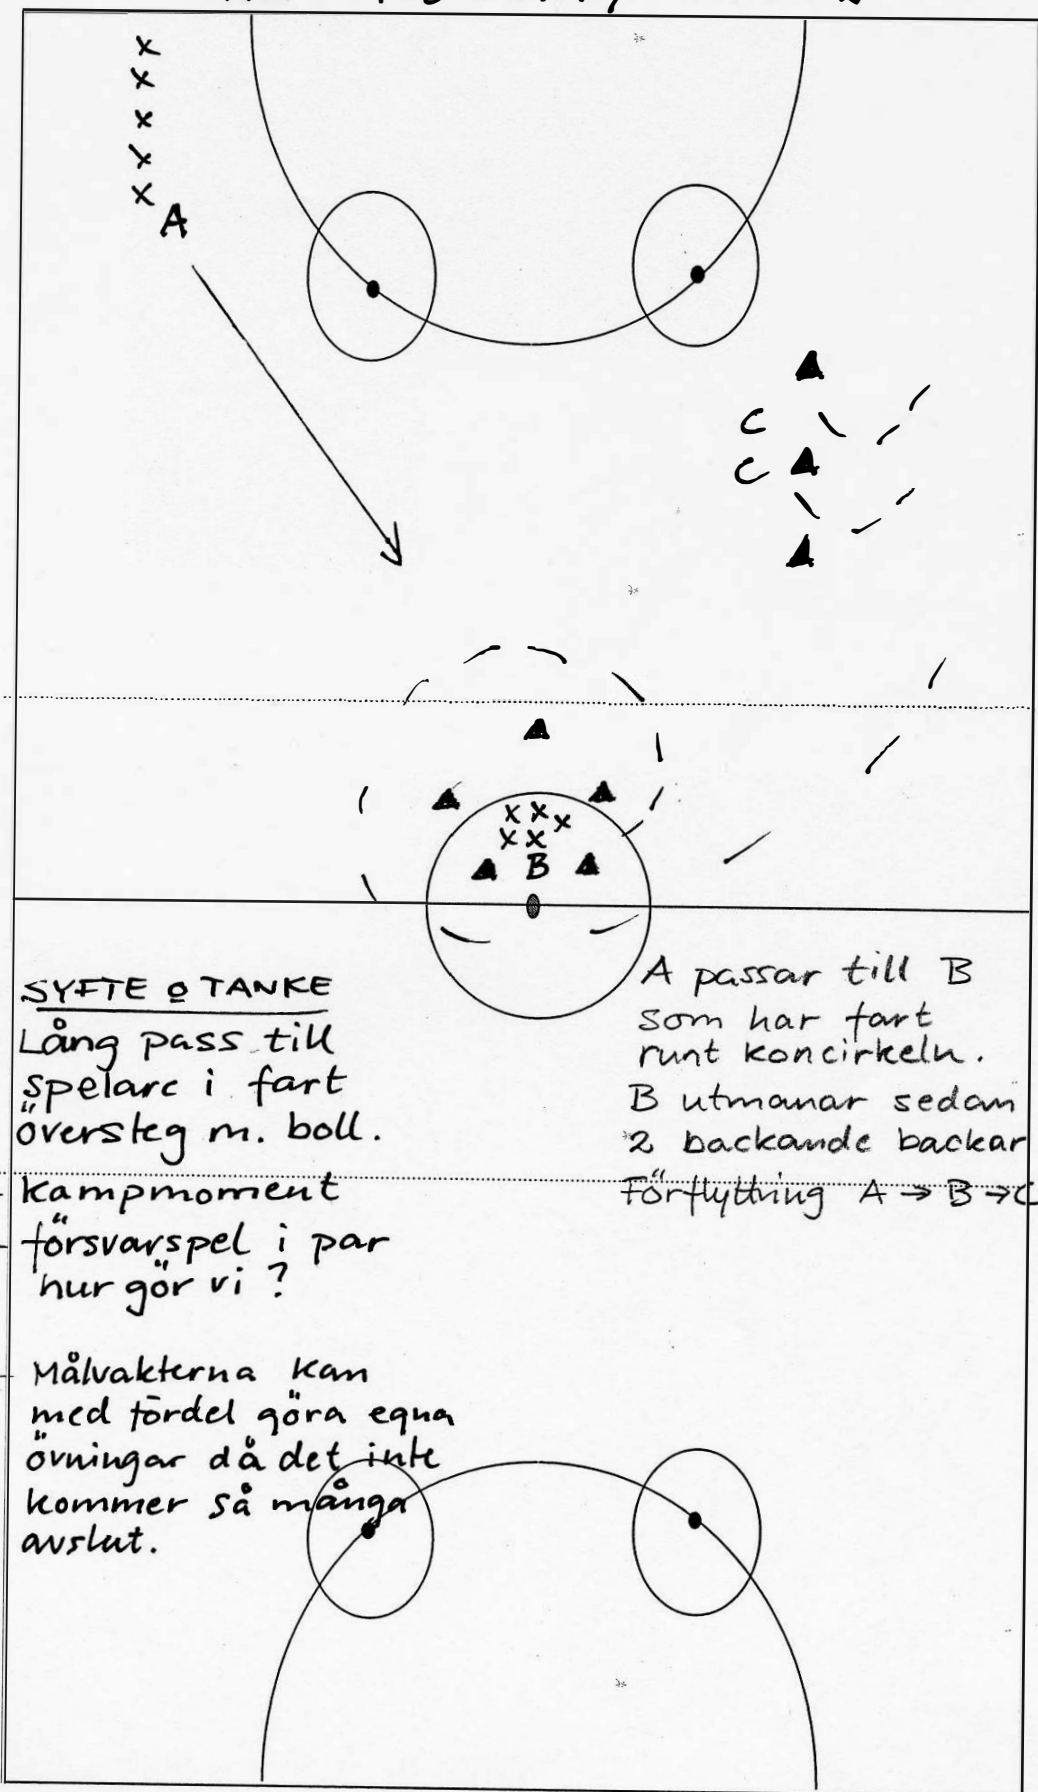 x
x
x
x
x
A
C
C
x x x
x x
B
SYFTE o TANKE
Lång pass till
spelare i fart
översteg m. boll.
Kampmoment
försvarspel i par
hur gör vi ?
Målvakterna kan
med fördel göra egna
övningar då det inte
kommer så många
avslut.
A passar till B
som har fart
runt koncirkeln.
B utmanar sedan
2 backande backar
Förflyttning A → B → C